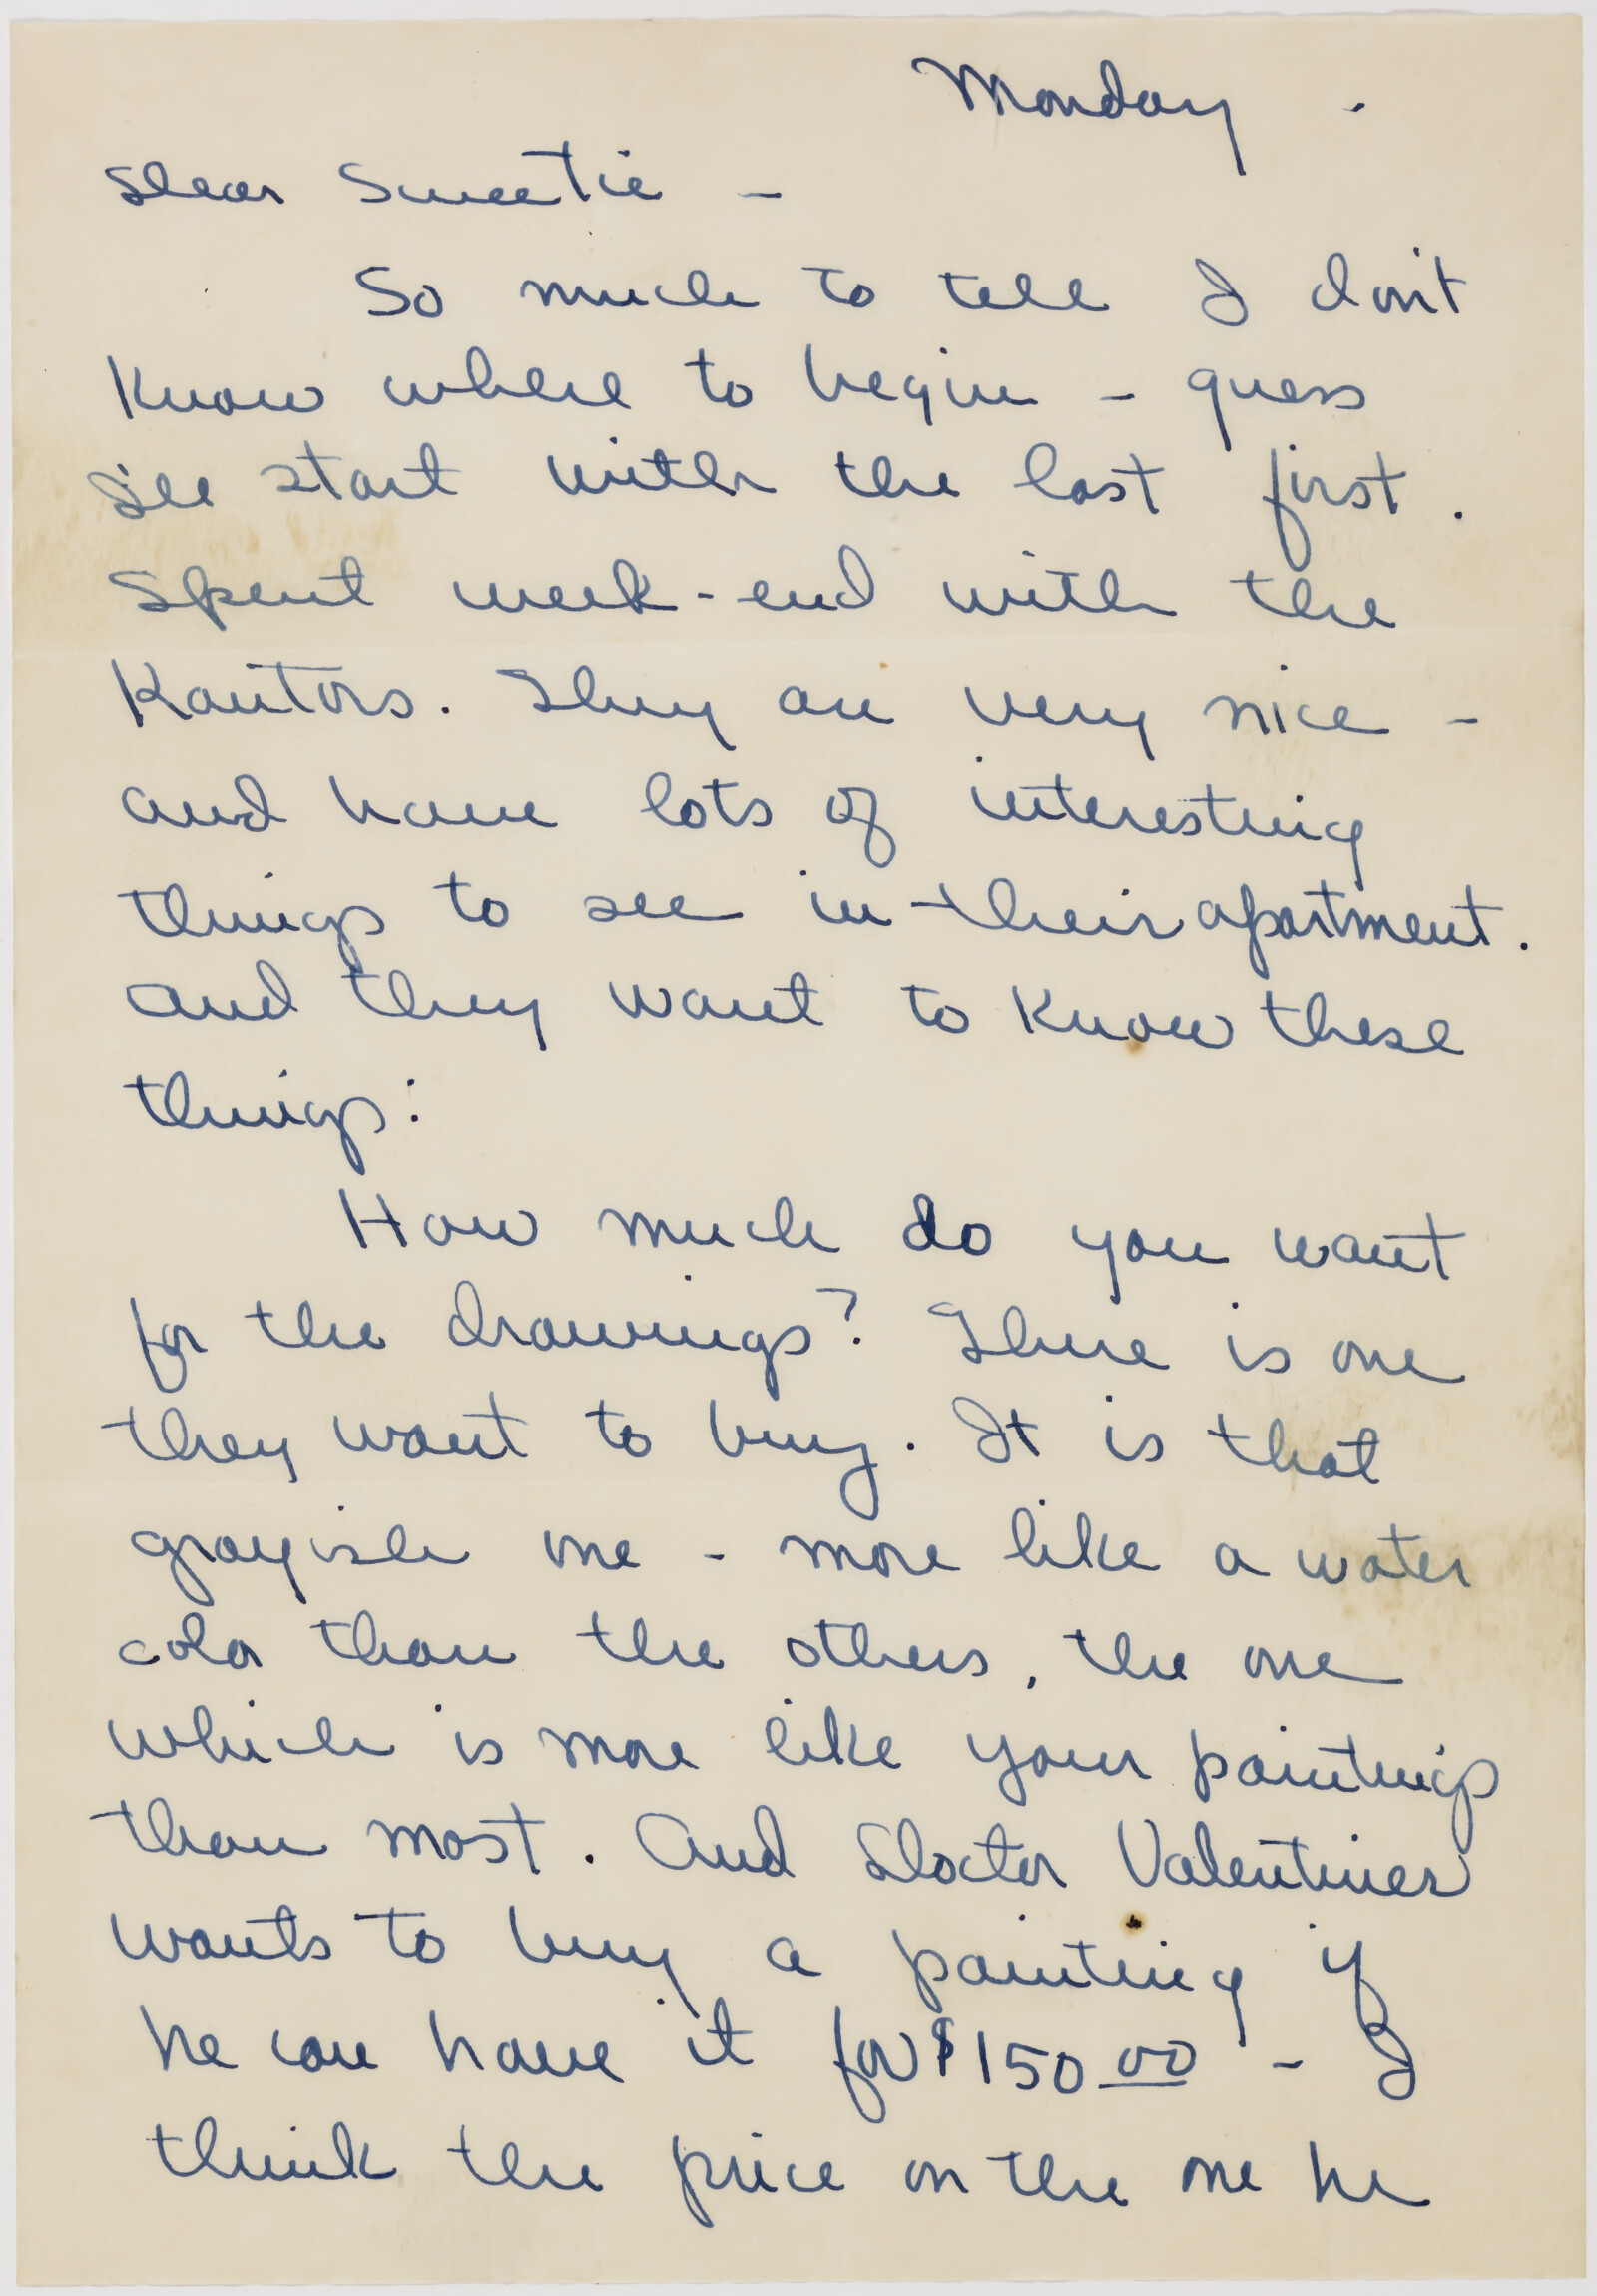 Monday -
Dear Sweetie -
So much to tell I don't
know where to begin - guess
I'll start with the last first.
Spent week-end with the
Kantors. They are very nice -
and have lots of interesting
things to see in their apartment.
and they want to know these
things:
How much do you want
for the drawings? There is one
they want to buy. It is that
grayish one - more like a water
color than the others, the one
which is more like your paintings
than most. And Doctor Valentiner
wants to buy a painting if
he can have it for $150 00 - I
think the price on the one he